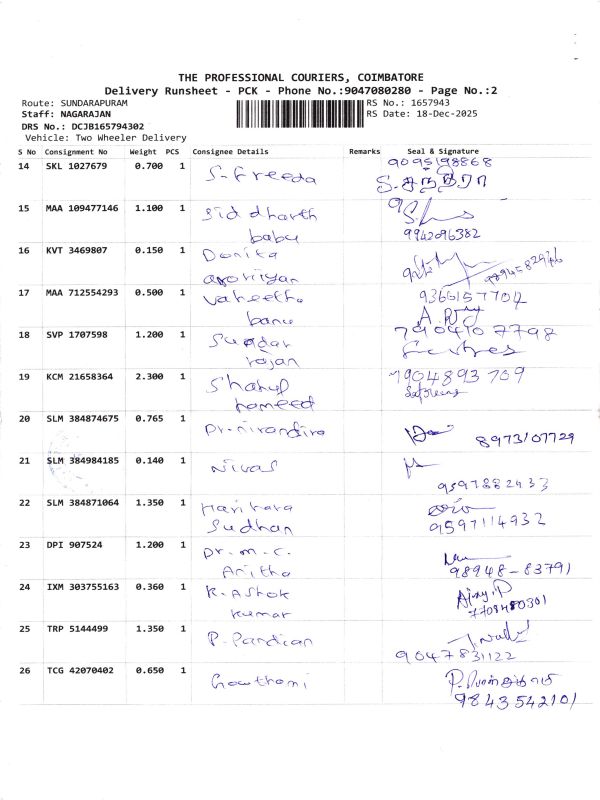 THE PROFESSIONAL COURIERS, COIMBATORE
Delivery Runsheet - PCK - Phone No.:9047080280 - Page No.:2
Route: SUNDARAPURAM
RS No.: 1657943
Staff: NAGARAJAN
RS Date: 18-Dec-2025
DRS No.: DCJB165794302
Vehicle: Two Wheeler Delivery
S No Consignment No Weight PCS Consignee Details Remarks Seal & Signature
14 SKL 1027679 0.700 1 S-Freeda 9095198868
15 MAA 109477146 1.100 1 Siddharth
babu 9942096382
16 KVT 3469807 0.150 1 Donika
17 MAA 712554293 0.500 1 Vaheetha 9366157704
banu
18 SVP 1707598 1.200 1 Sundar 7904107798
rajan
19 KCM 21658364 2.300 1 Shahul 7904893709
hameed
20 SLM 384874675 0.765 1 Dr.nirandira 8973107729
21 SLM 384984185 0.140 1 Nivas
9597882433
22 SLM 384871064 1.350 1 Harihara
Sudhan 9597114932
23 DPI 907524 1.200 1 Dr.m.c.
Anitha 98948-83791
24 IXM 303755163 0.360 1 K.Ashok Ajay.P
kumar
25 TRP 5144499 1.350 1 P.Pandian
9047831122
26 TCG 42070402 0.650 1 Gowthami
9843542101